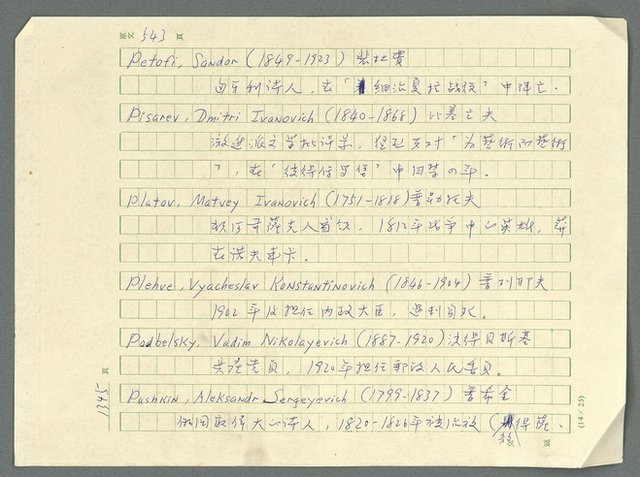 原文 543 頁
Petofi, Sandor (1849-1923) 裴杜費
匈牙利詩人，在「 戰役」中陣亡．
Pisarev, Dmitri Ivanovich (1840-1868) 比基亡夫
激進派文學批評家，堅 反對「为藝術而藝術
」，在「彼得 堡」中囚禁四年．
Platov, Matvey Ivanovich (1751-1818) 普勒托夫
頓河哥薩克人首領，1812年戰爭中的英雄，葬
在諾夫 卡．
Plehve, Vyacheslav Konstantinovich (1846-1904) 普利耶夫
1902年 担任內政大臣，遇刺 死．
Podbelsky, Vadim Nikolayevich (1887-1920) 波得貝斯基
共產党員，1920年担任郵政人民委員。
Pushkin, Aleksandr Sergeyevich (1799-1837) 普希金
俄国最偉大的詩人，1820-1826年被流放（
1345 頁
(14／25)